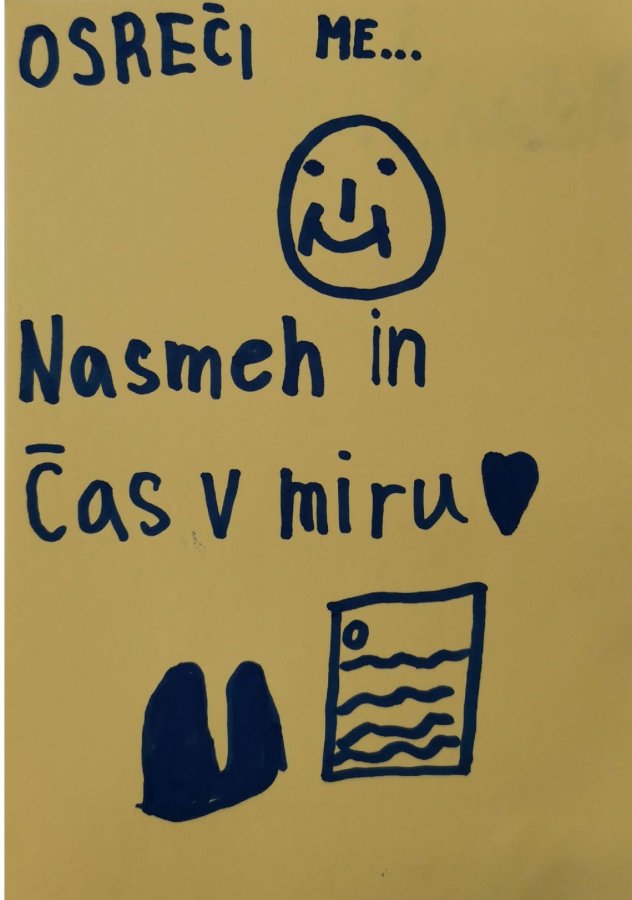 OSREČI ME...
Nasmeh in
Čas v miru